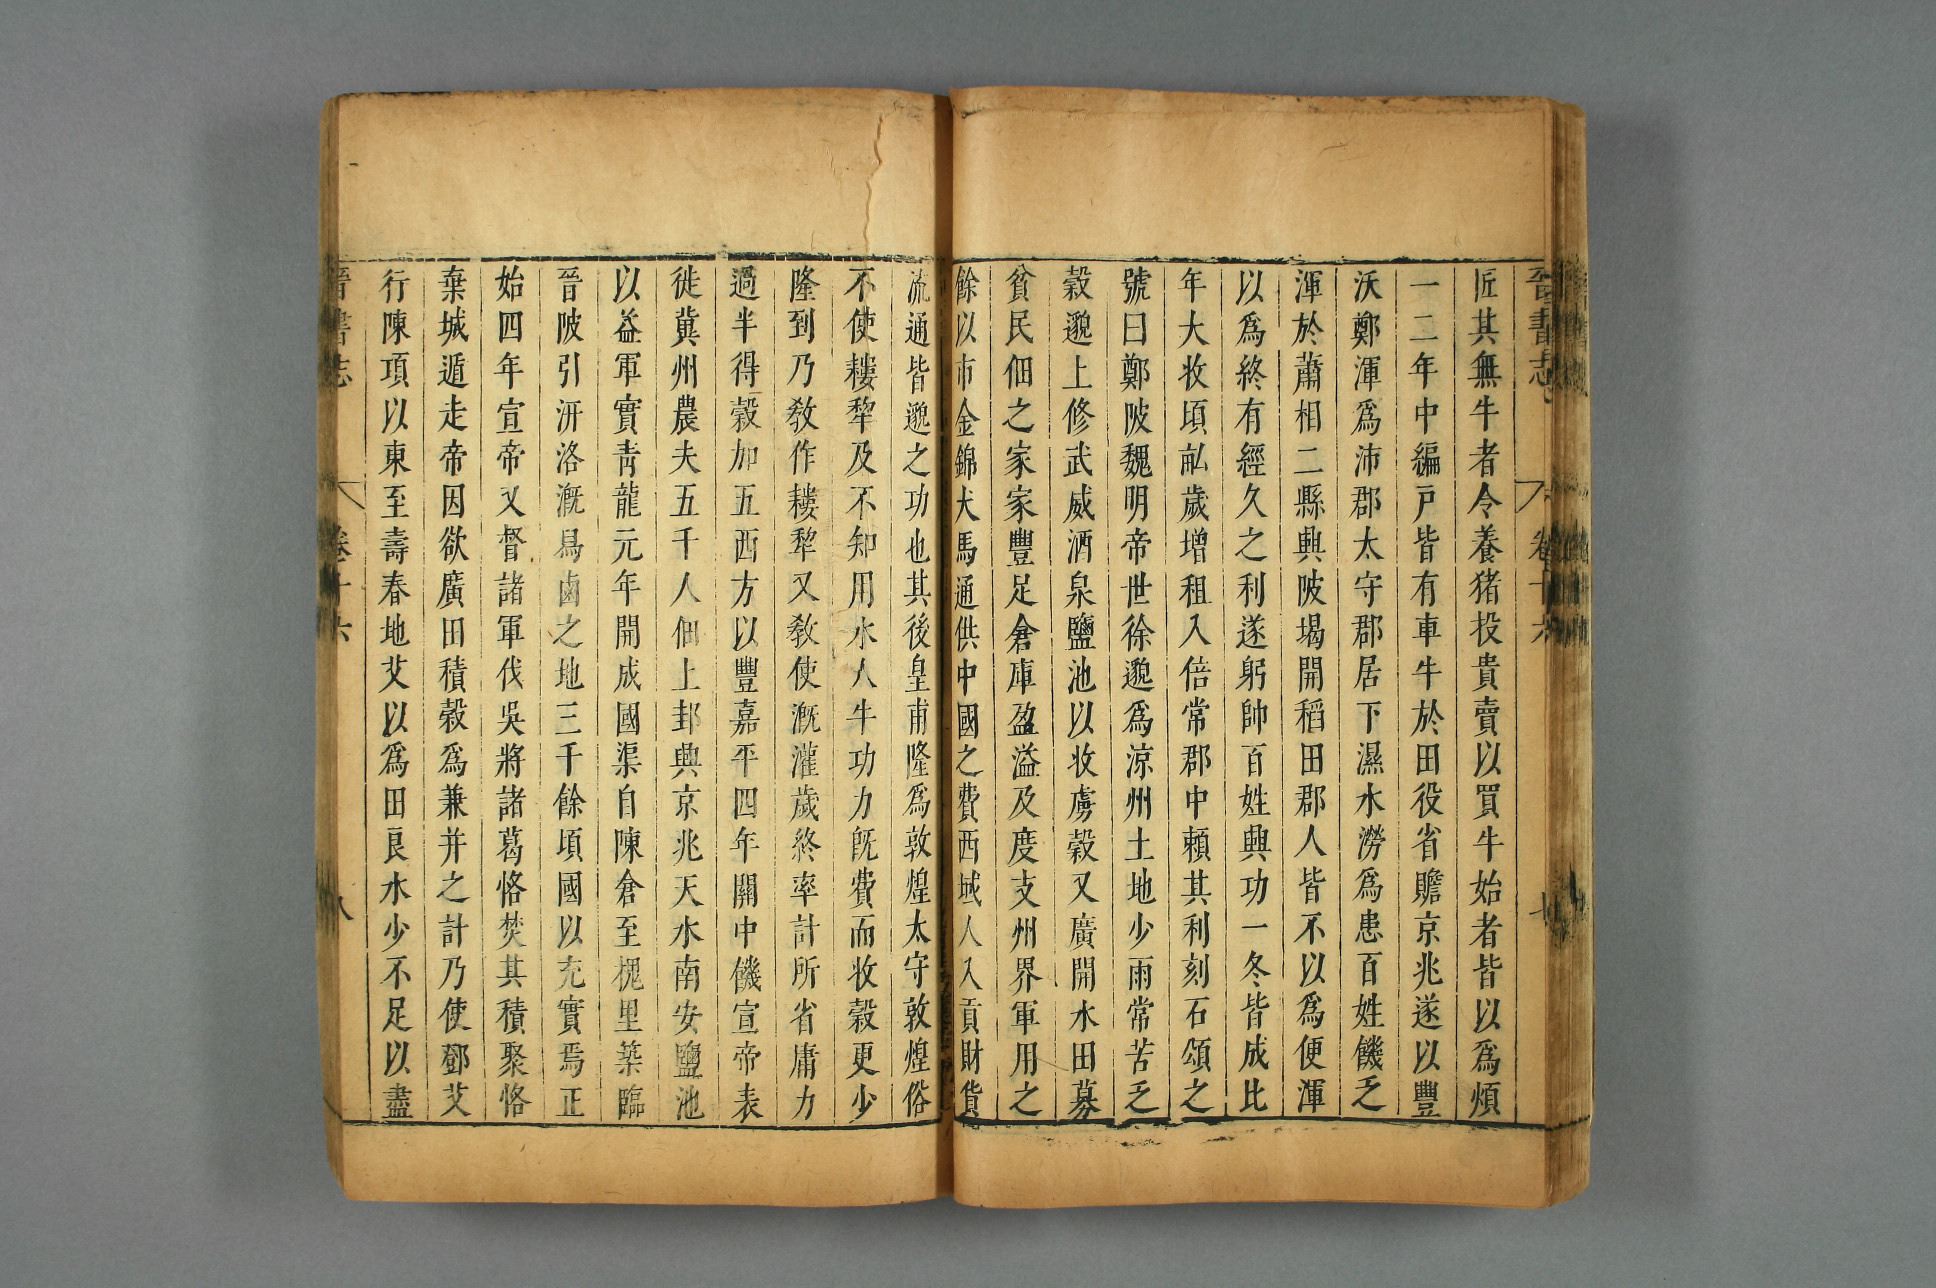 晉書志 卷十六 七
匠其無牛者令養猪投貴賣以買牛始者皆以爲煩
一二年中編戸皆有車牛於田役省贍京兆遂以豐
沃鄭渾爲沛郡太守郡居下濕水澇爲患百姓饑乏
渾於蕭相二縣興陂堨開稻田郡人皆不以爲便渾
以爲終有經久之利遂躬帥百姓興功一冬皆成比
年大收頃畝歲增租入倍常郡中賴其利刻石頌之
號曰鄭陂魏明帝世徐邈爲涼州土地少雨常苦乏
穀邈上修武威酒泉鹽池以收虜穀又廣開水田募
貧民佃之家家豐足倉庫盈溢及度支州界軍用之
餘以市金錦犬馬通供中國之費西域人入貢財貨
流通皆邈之功也其後皇甫隆爲敦煌太守敦煌俗
不使耬犂及不知用水人牛功力旣費而收穀更少
隆到乃敎作耬犂又敎使漑灌歲終率計所省庸力
過半得穀加五西方以豐嘉平四年關中饑宣帝表
徙冀州農夫五千人佃上邽興京兆天水南安鹽池
以益軍實靑龍元年開成國渠自陳倉至槐里築臨
晉陂引汧洛漑舄鹵之地三千餘頃國以充實焉正
始四年宣帝又督諸軍伐吳將諸葛恪焚其積聚恪
棄城遁走帝因欲廣田積穀爲兼并之計乃使鄧艾
行陳項以東至壽春地艾以爲田良水少不足以盡
晉書志 卷十六 八